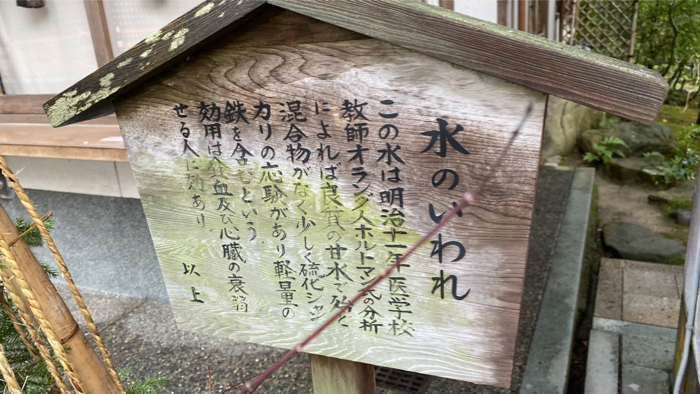 水のいわれ
この水は明治十一年医学校
教師オランダ人ホルトマン氏の分析
によれば良質の甘水で
混合物がなく少しく硫化シャン
カリの応験があり軽量の
鉄を含むという
効用は貧血及び心臓の衰弱
せる人に効あり
以上